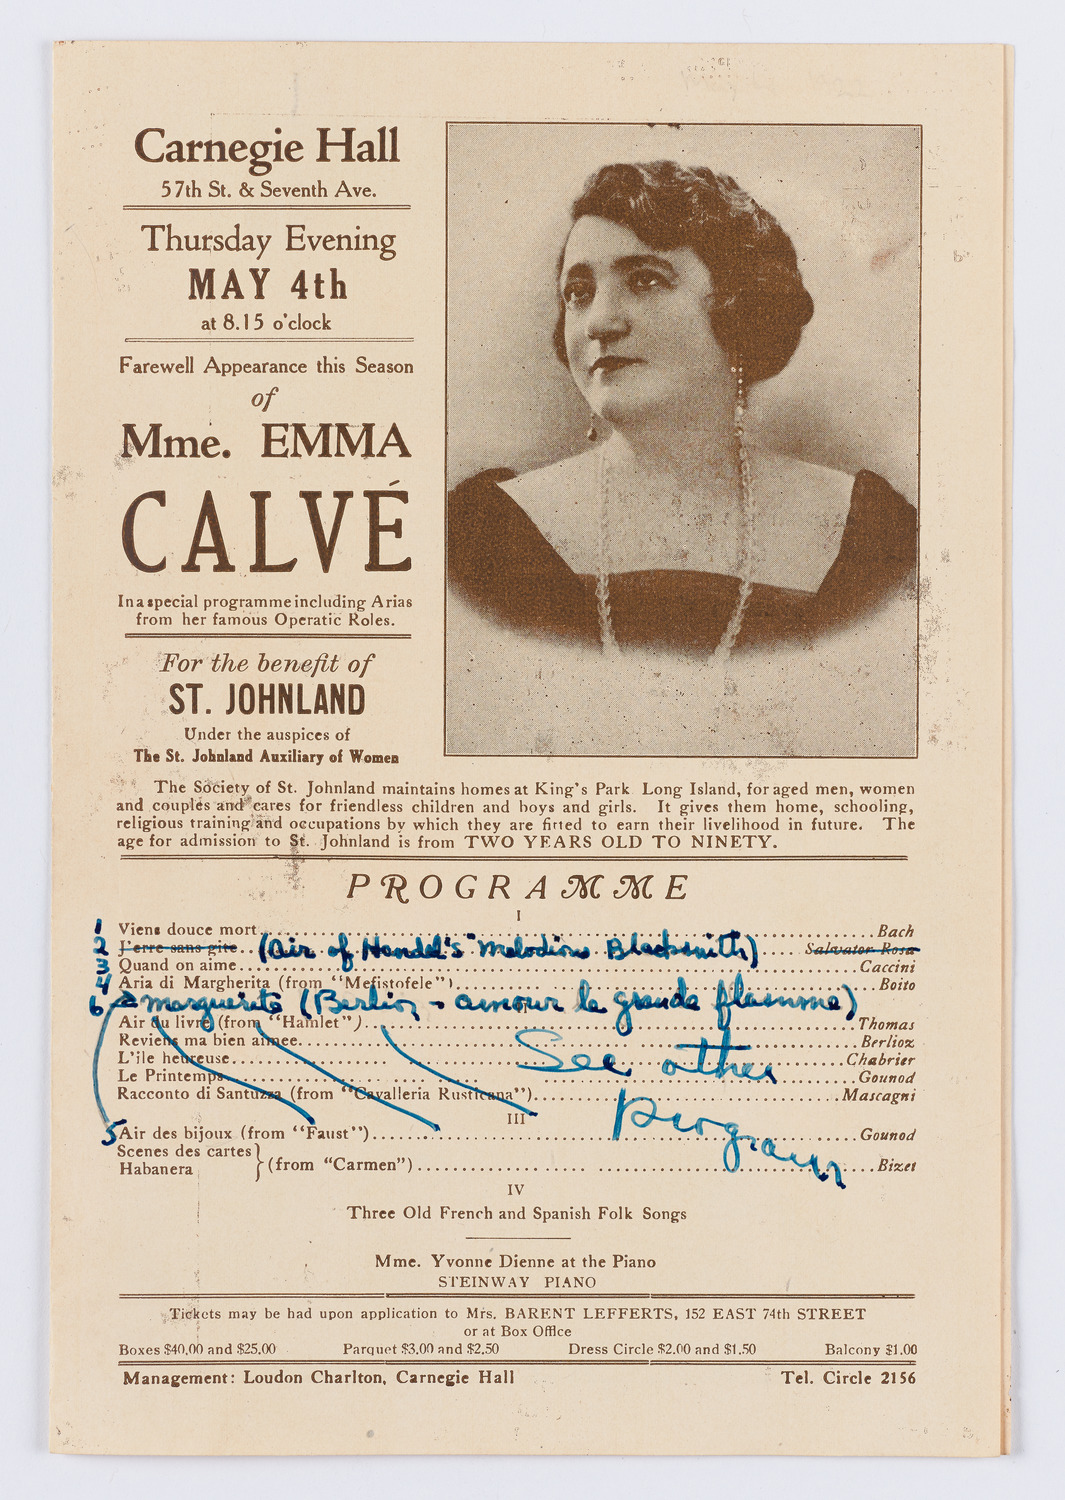 Carnegie Hall
57th St. & Seventh Ave.
Thursday Evening
MAY 4th
at 8.15 o'clock
Farewell Appearance this Season
of
Mme. EMMA
CALVÉ
In a special programme including Arias
from her famous Operatic Roles.
For the benefit of
ST. JOHNLAND
Under the auspices of
The St. Johnland Auxiliary of Women
The Society of St. Johnland maintains homes at King's Park Long Island, for aged men, women
and couples and cares for friendless children and boys and girls. It gives them home, schooling,
religious training and occupations by which they are fitted to earn their livelihood in future. The
age for admission to St. Johnland is from TWO YEARS OLD TO NINETY.
PROGRAMME
I
1 Viens douce mort Bach
2 J'erre sans gite (Air of Handel's Melodious Blacksmith) Salvator Rosa
3 Quand on aime Caccini
4 Aria di Margherita (from "Mefistofele") Boito
6 marguerite (Berlioz - amour la grande flamme)
Air du livre (from "Hamlet") Thomas
Reviens ma bien aimee Berlioz
L'ile heureuse Chabrier
See other
Le Printemps Gounod
Racconto di Santuzza (from "Cavalleria Rusticana") Mascagni
III
Program
5 Air des bijoux (from "Faust") Gounod
Scenes des cartes
Habanera } (from "Carmen") Bizet
IV
Three Old French and Spanish Folk Songs
Mme. Yvonne Dienne at the Piano
STEINWAY PIANO
Tickets may be had upon application to Mrs. BARENT LEFFERTS, 152 EAST 74th STREET
or at Box Office
Boxes $40.00 and $25.00 Parquet $3.00 and $2.50 Dress Circle $2.00 and $1.50 Balcony $1.00
Management: Loudon Charlton, Carnegie Hall Tel. Circle 2156